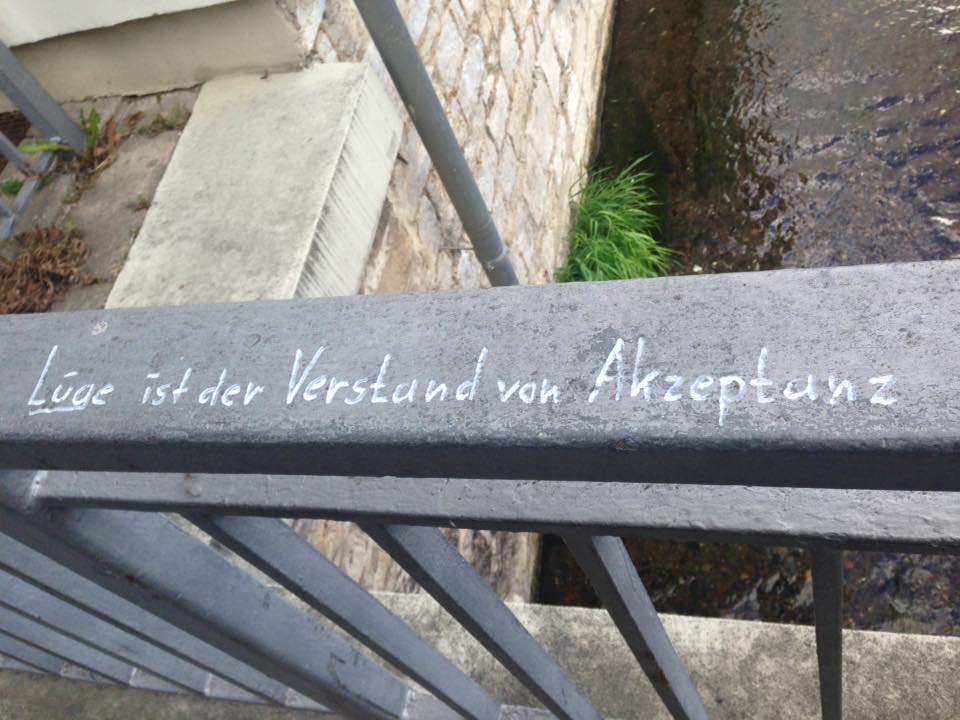 Lüge ist der Verstand von Akzeptanz